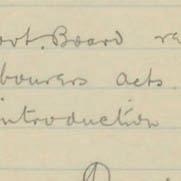 ovt. Board re
bourers acts.
introduction